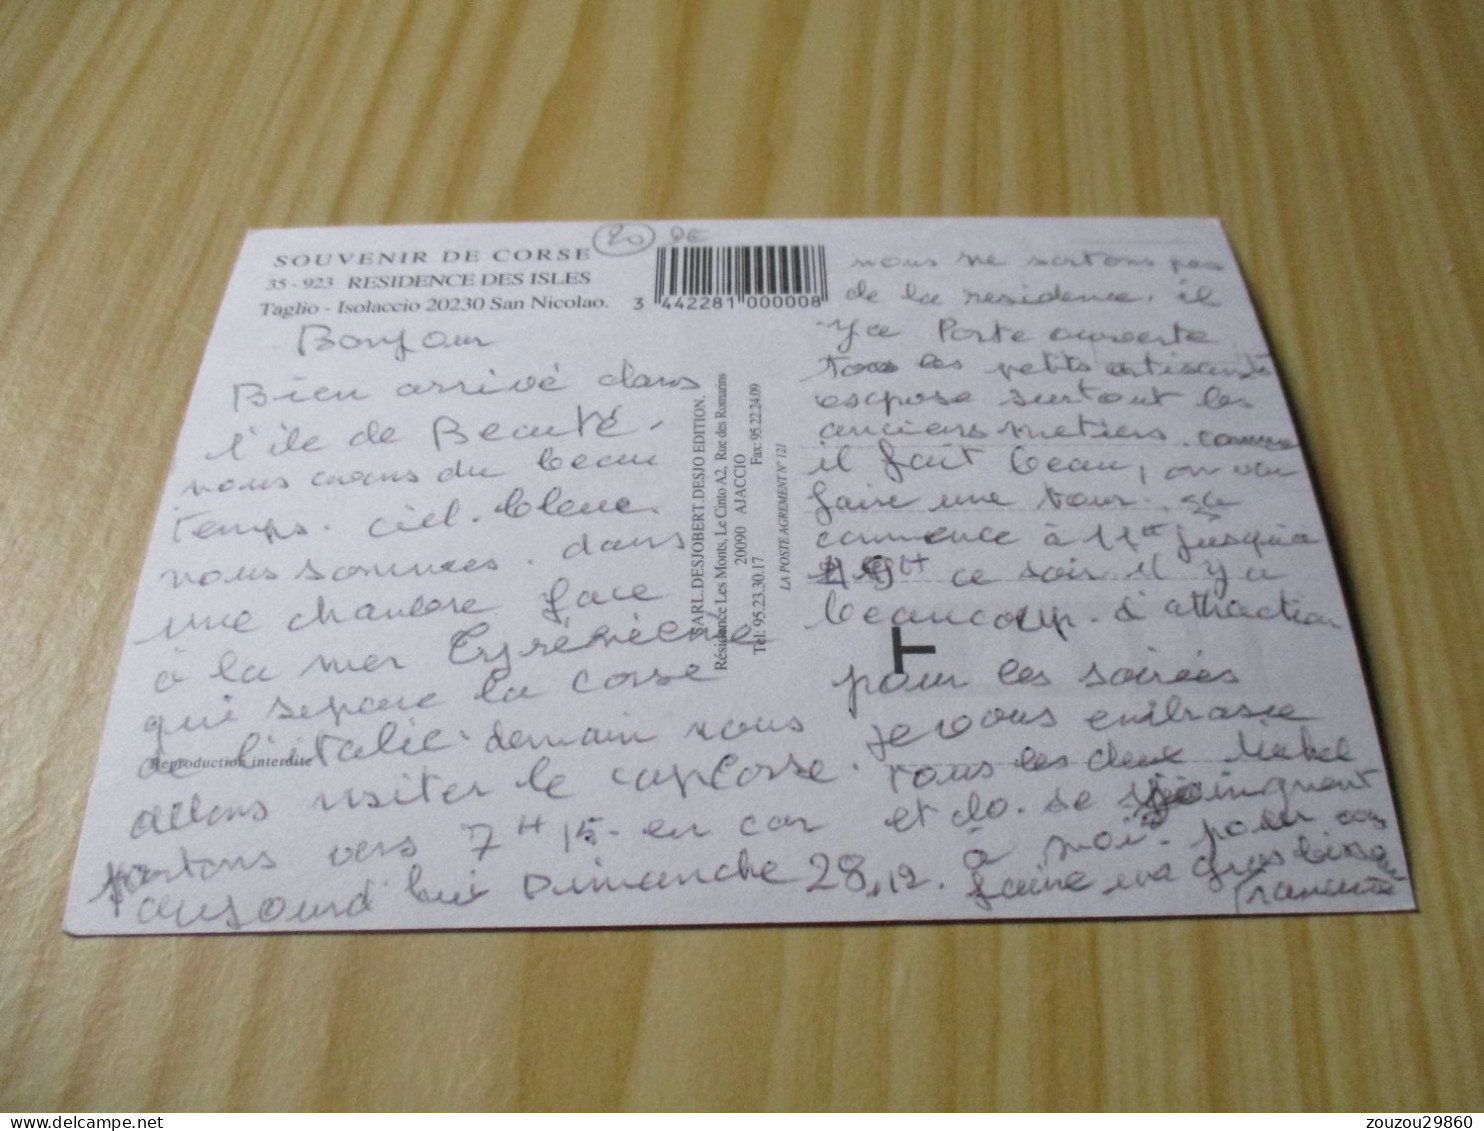 SOUVENIR DE CORSE
35 - 923 RESIDENCE DES ISLES
Taglio - Isolaccio 20230 San Nicolao.
20 DE
3 442281 000008
Bonjour
Bien arrivé dans
l'île de Beauté.
nous avons du beau
temps. ciel. bleue.
nous sommes. dans
une chambre face
à la mer Tyrénéene
qui separe la corse
de l'italie. demain nous
allons visiter le cap Corse.
partons vers 7H 15- en car
aujourd'hui Dimanche 28.
Reproduction interdite
SARL.DESJOBERT.DESJO EDITION.
Résidence Les Monts, Le Cinto A2, Rue des Romarins
20090 AJACCIO
Tél: 95.23.30.17 Fax: 95.22.24.09
LA POSTE AGREMENT N° 121
nous ne sortons pas
de la residence. il
y a Porte ouverte
tous les petits artisants
expose surtout les
anciens metiers. comme
il fait beau, on va
faire une tour. sa
commence à 11H jusqu'a
19H ce soir il y a
beaucoup. d'attraction
T
pour les soirées
je vous embrasse
tous les deux
et do. se joingnent
à moi. pour vous
faire un gros bisou